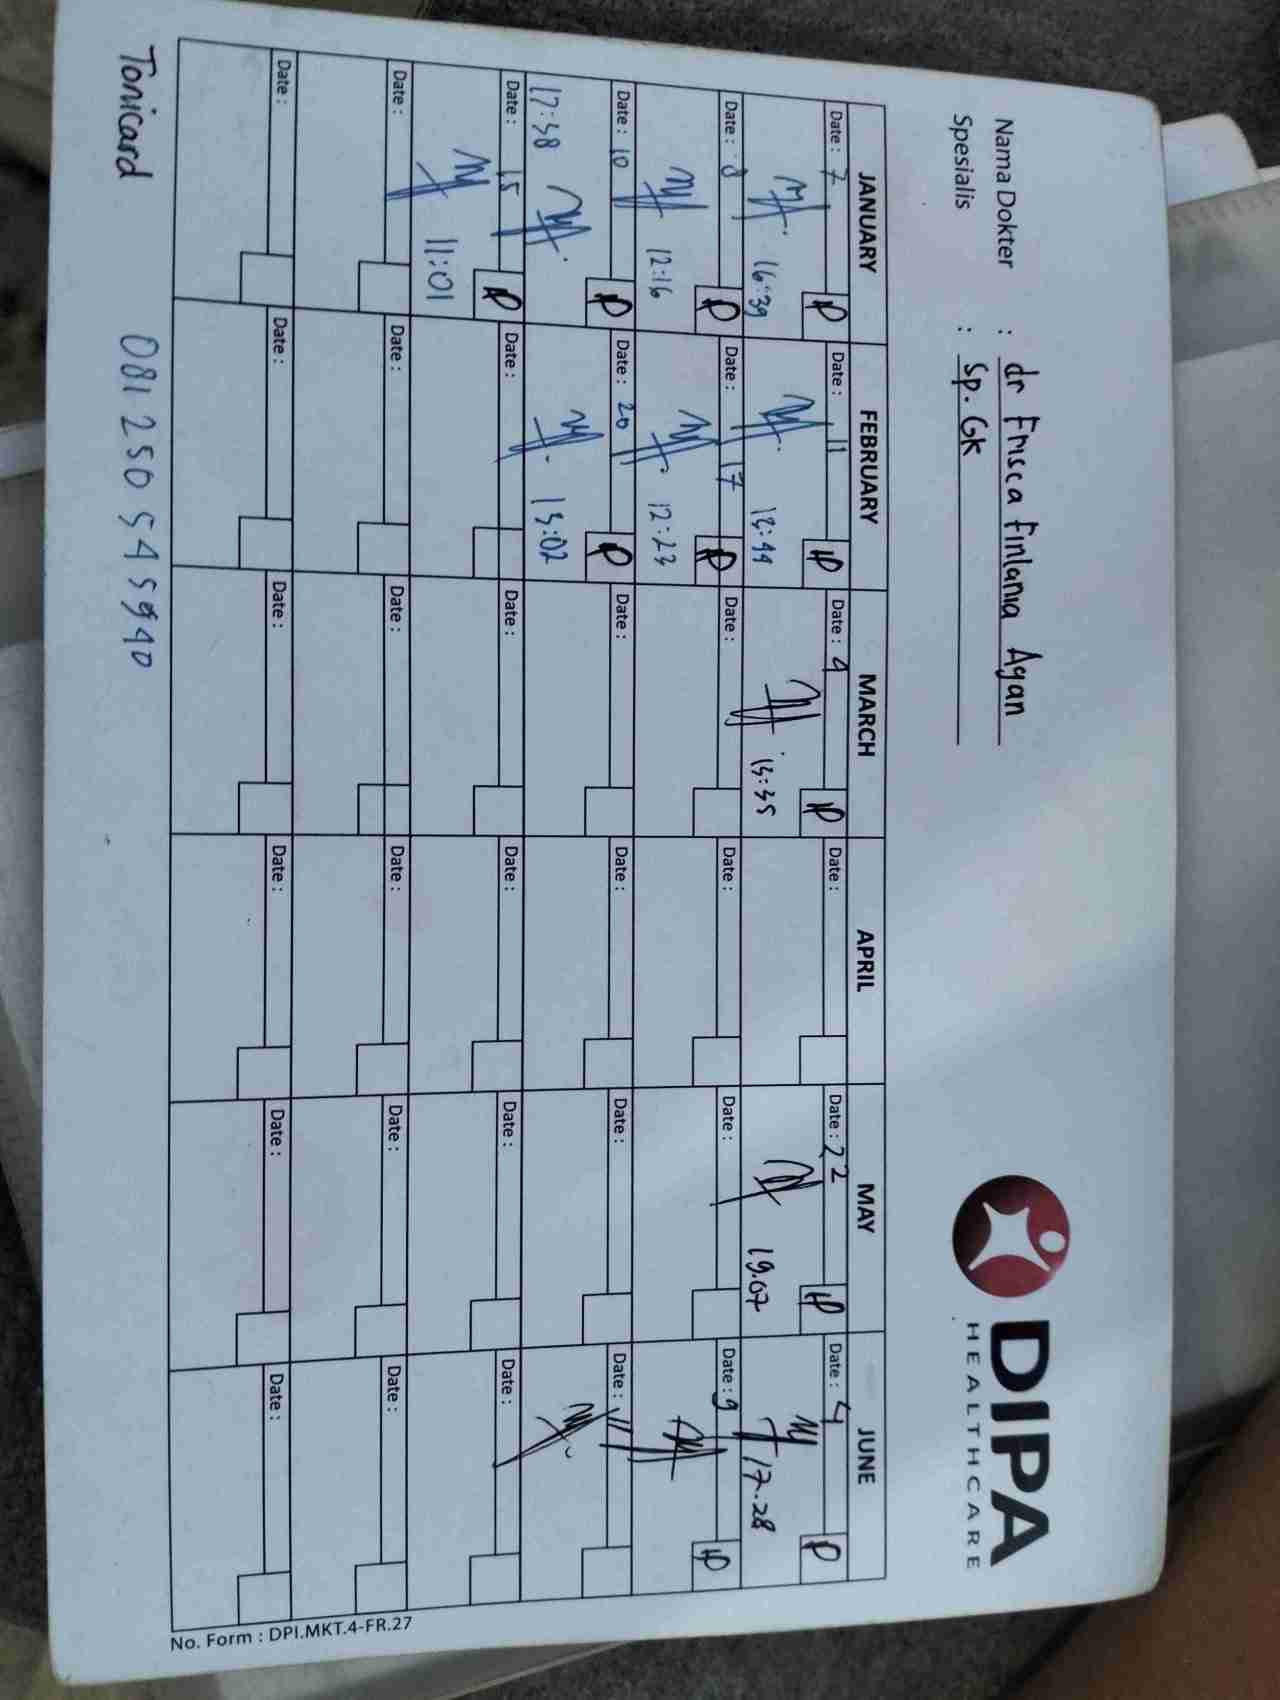 DIPA
HEALTHCARE
Nama Dokter : dr Frisca Finlania Agan
Spesialis : Sp. GK
JANUARY FEBRUARY MARCH APRIL MAY JUNE
Date : 7 Date : 11 Date : 4 Date : Date : 22 Date : 4
16:39 13:44 13:35 19.07 17.28
Date : 8 Date : 17 Date : Date : Date : Date : 9
12:16 12:23
Date : 10 Date : 20 Date : Date : Date : Date : 11
17:38 13:02
Date : 15 Date : Date : Date : Date : Date :
11:01
Date : Date : Date : Date : Date : Date :
Date : Date : Date : Date : Date : Date :
No. Form : DPI.MKT.4-FR.27
Tonicard 081 250 545940